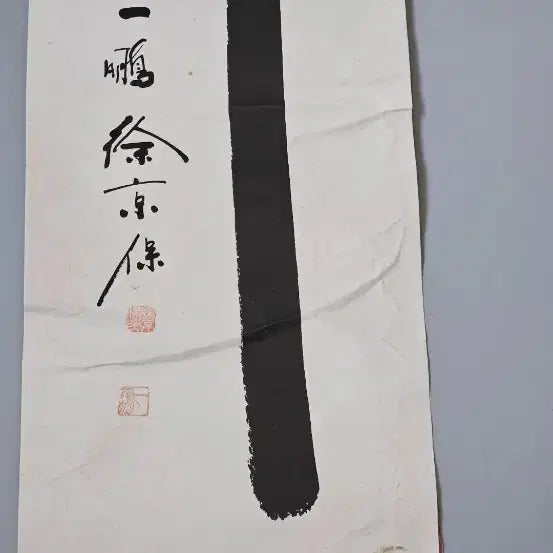 一鵬徐京保